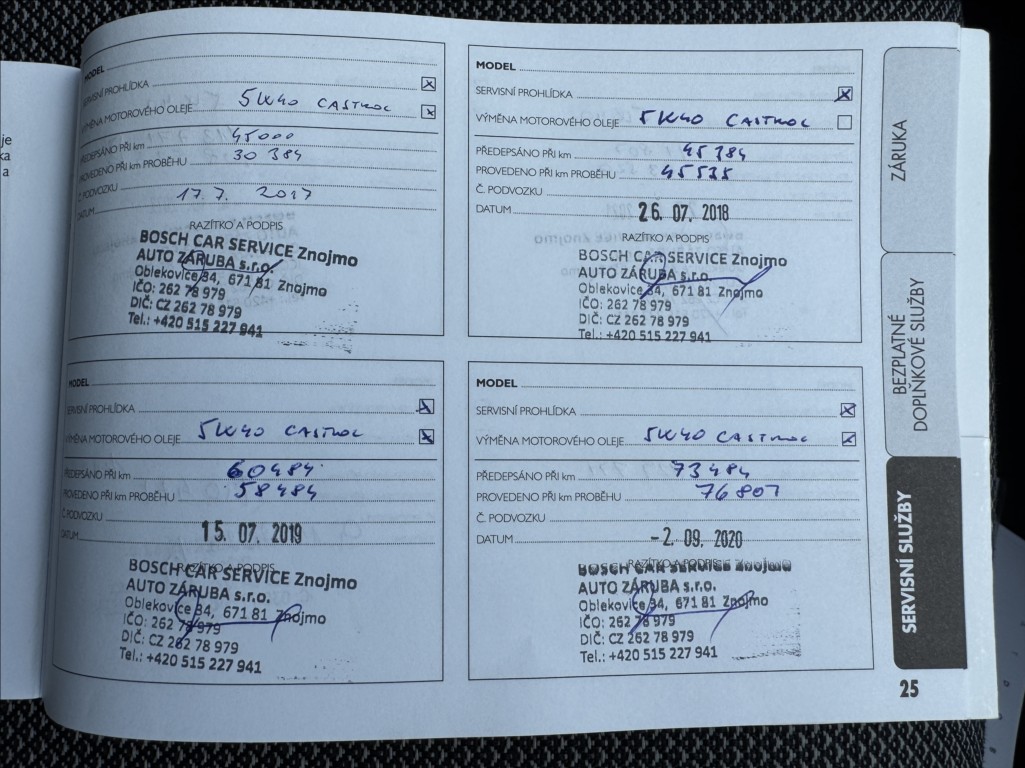 MODEL
SERVISNÍ PROHLÍDKA
VÝMĚNA MOTOROVÉHO OLEJE 5W40 CASTROL
PŘEDEPSÁNO PŘI km 45000
PROVEDENO PŘI km PROBĚHU 30 384
Č. PODVOZKU
DATUM 17. 7. 2017
RAZÍTKO A PODPIS
BOSCH CAR SERVICE Znojmo
AUTO ZÁRUBA s.r.o.
Oblekovice 34, 671 81 Znojmo
IČO: 262 78 979
DIČ: CZ 262 78 979
Tel.: +420 515 227 941
MODEL
SERVISNÍ PROHLÍDKA
VÝMĚNA MOTOROVÉHO OLEJE 5W40 CASTROL
PŘEDEPSÁNO PŘI km 45384
PROVEDENO PŘI km PROBĚHU 45535
Č. PODVOZKU
DATUM 26. 07. 2018
RAZÍTKO A PODPIS
BOSCH CAR SERVICE Znojmo
AUTO ZÁRUBA s.r.o.
Oblekovice 34, 671 81 Znojmo
IČO: 262 78 979
DIČ: CZ 262 78 979
Tel.: +420 515 227 941
MODEL
SERVISNÍ PROHLÍDKA
VÝMĚNA MOTOROVÉHO OLEJE 5W40 CASTROL
PŘEDEPSÁNO PŘI km 60484
PROVEDENO PŘI km PROBĚHU 58484
Č. PODVOZKU
DATUM 15. 07. 2019
RAZÍTKO A PODPIS
BOSCH CAR SERVICE Znojmo
AUTO ZÁRUBA s.r.o.
Oblekovice 34, 671 81 Znojmo
IČO: 262 78 979
DIČ: CZ 262 78 979
Tel.: +420 515 227 941
MODEL
SERVISNÍ PROHLÍDKA
VÝMĚNA MOTOROVÉHO OLEJE 5W40 CASTROL
PŘEDEPSÁNO PŘI km 73484
PROVEDENO PŘI km PROBĚHU 76807
Č. PODVOZKU
DATUM -2. 09. 2020
RAZÍTKO A PODPIS
BOSCH CAR SERVICE Znojmo
AUTO ZÁRUBA s.r.o.
Oblekovice 34, 671 81 Znojmo
IČO: 262 78 979
DIČ: CZ 262 78 979
Tel.: +420 515 227 941
ZÁRUKA
BEZPLATNÉ
DOPLŇKOVÉ SLUŽBY
SERVISNÍ SLUŽBY
25